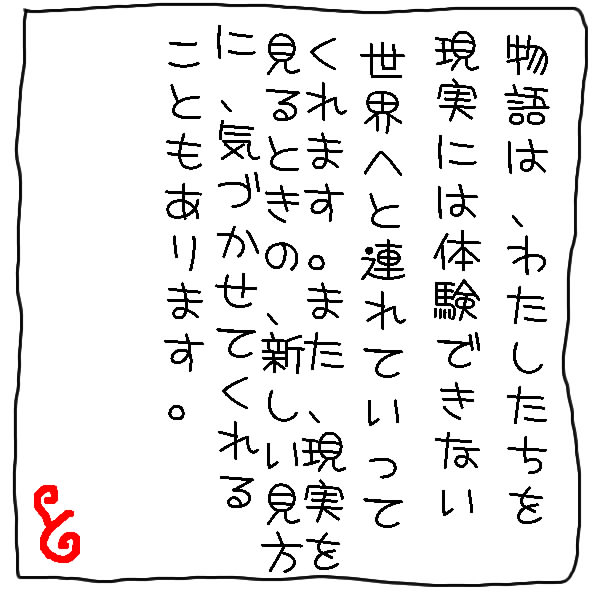 物語は、わたしたちを
現実には体験できない
世界へと連れていって
くれます。また、現実を
見るときの、新しい見方
に、気づかせてくれる
こともあります。